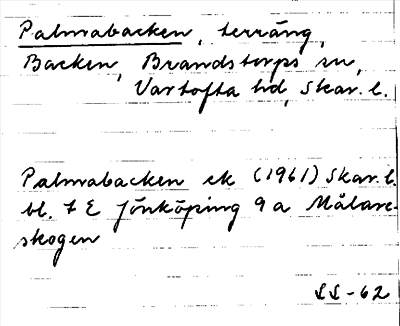 Palmabacken, terräng,
Backen, Brandstorps sn,
Vartofta hd, Skar. l.
Palmabacken ek (1961) Skar. l.
bl. 7 E Jönköping 9 a Målare-
skogen
SS-62